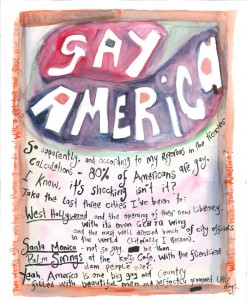 GAY
AMERICA
So apparently, and according to my Rigorous in the
Calculations - 80% of Americans are gay.
I know, it's shocking isn't it?
Take the last three cities I've been to:
West Hollywood and the opening of their new Library.
With its own GLBTQ wing
and the most well dressed bunch of city officers
in the world (Literally I Reckon).
Santa Monica - not so gay, but then
Palm Springs at the Koffi Cafe, with the friendliest
damn people ever.
Yeah America is one big gay out Country
filled with beautiful men and perfectly groomed